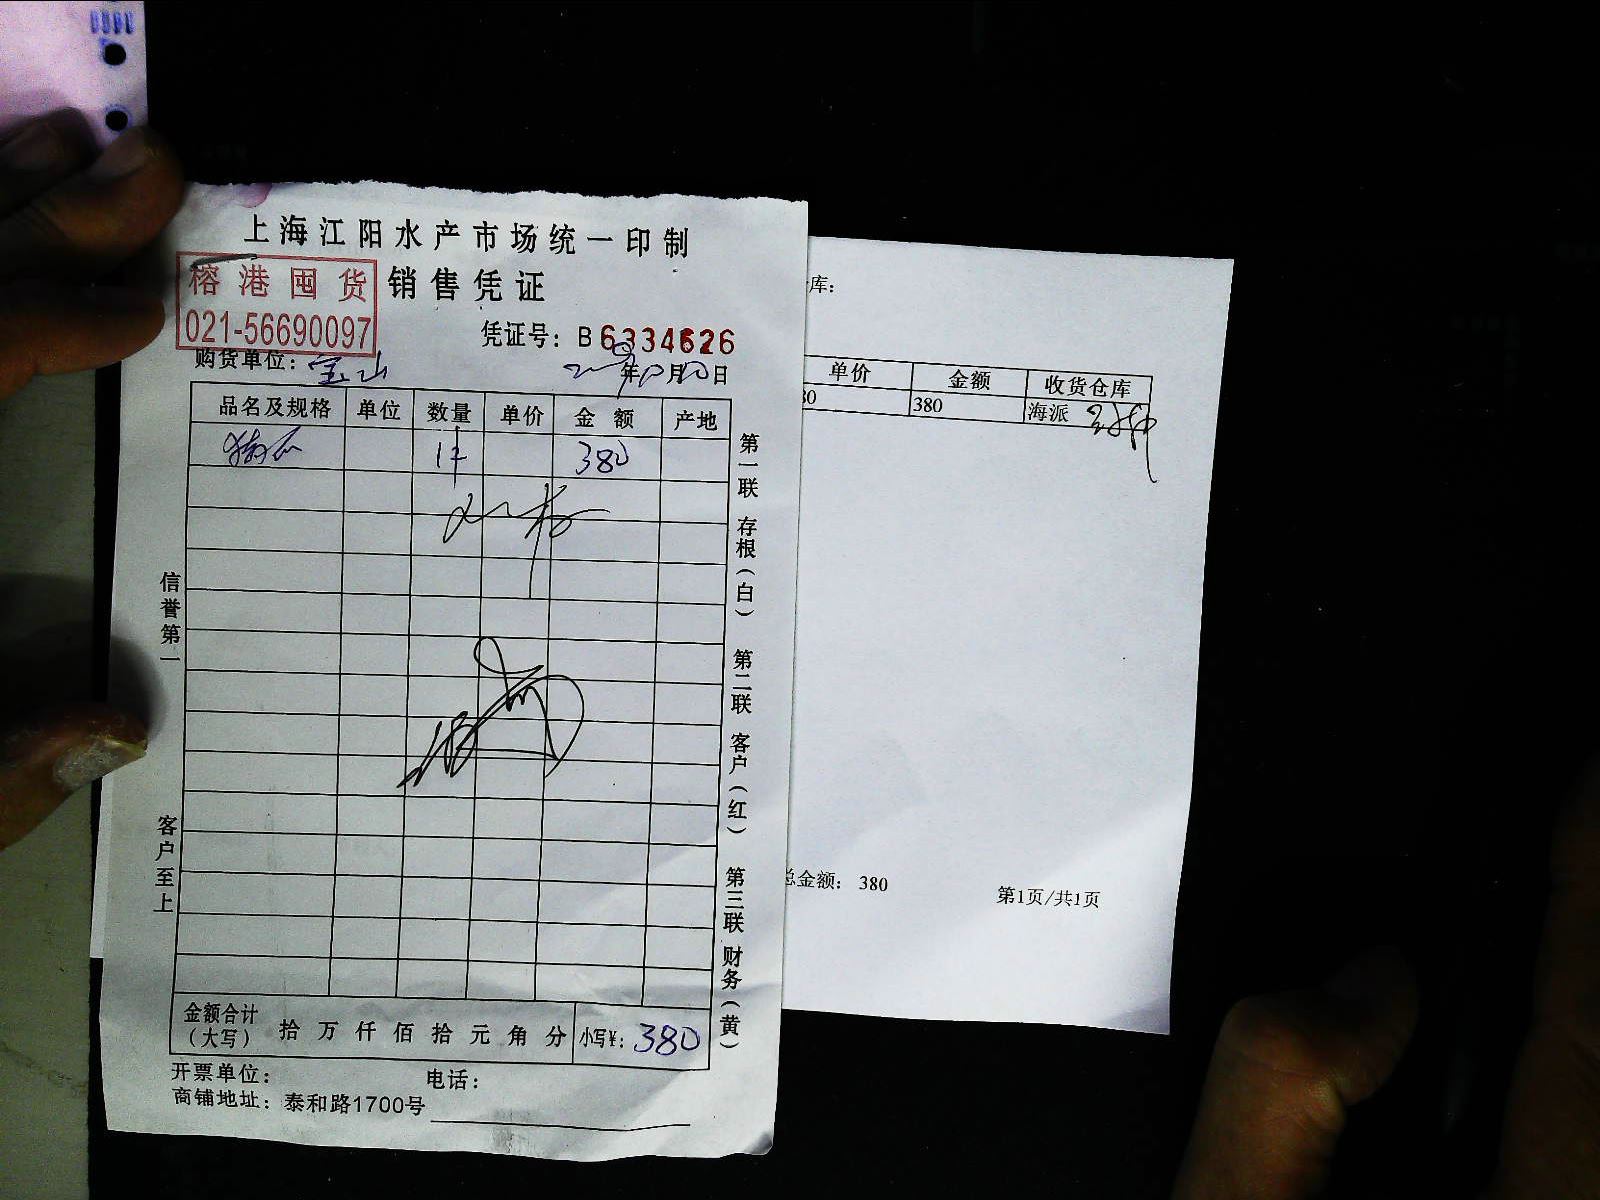 上海江阳水产市场统一印制
榕港囤货 销售凭证
021-56690097
凭证号：B6334626
购货单位：宝山
年10月20日
品名及规格 单位 数量 单价 金额 产地
380
信誉第一
客户至上
第一联 存根（白） 第二联 客户（红） 第三联 财务（黄）
金额合计（大写） 拾万仟佰拾元角分 小写¥：380
开票单位： 电话：
商铺地址：泰和路1700号
库：
单价 金额 收货仓库
80 380 海派
总金额：380
第1页/共1页